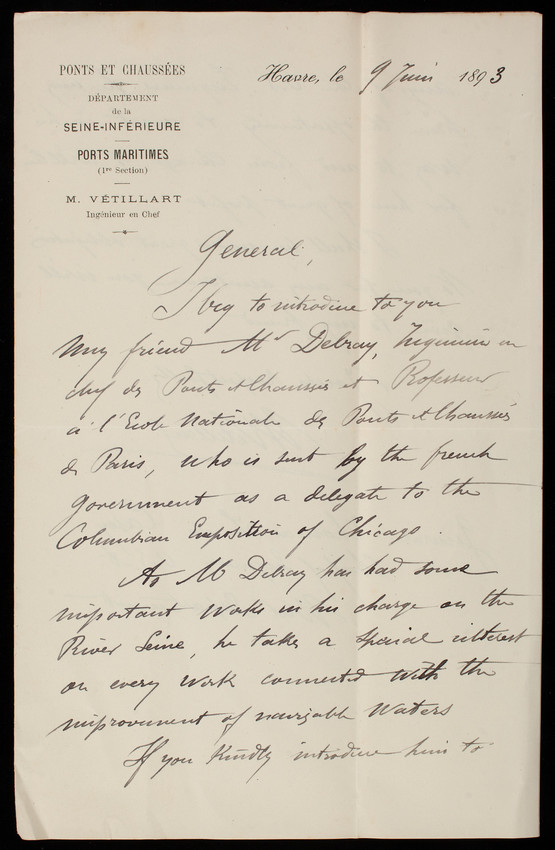 PONTS ET CHAUSSÉES
DÉPARTEMENT
de la
SEINE-INFÉRIEURE
PORTS MARITIMES
(1re Section)
M. VÉTILLART
Ingénieur en Chef
Havre, le 9 Juin 1893
General,
I beg to introduce to you
my friend Mr Debray, Ingénieur en
chef des Ponts et Chaussées et Professeur
à l'Ecole Nationale des Ponts et Chaussées
de Paris, who is sent by the french
government as a delegate to the
Columbian Exposition of Chicago.
As Mr Debray has had some
important works in his charge on the
River Seine, he takes a special interest
on every work connected with the
improvement of navigable waters
If you kindly introduce him to